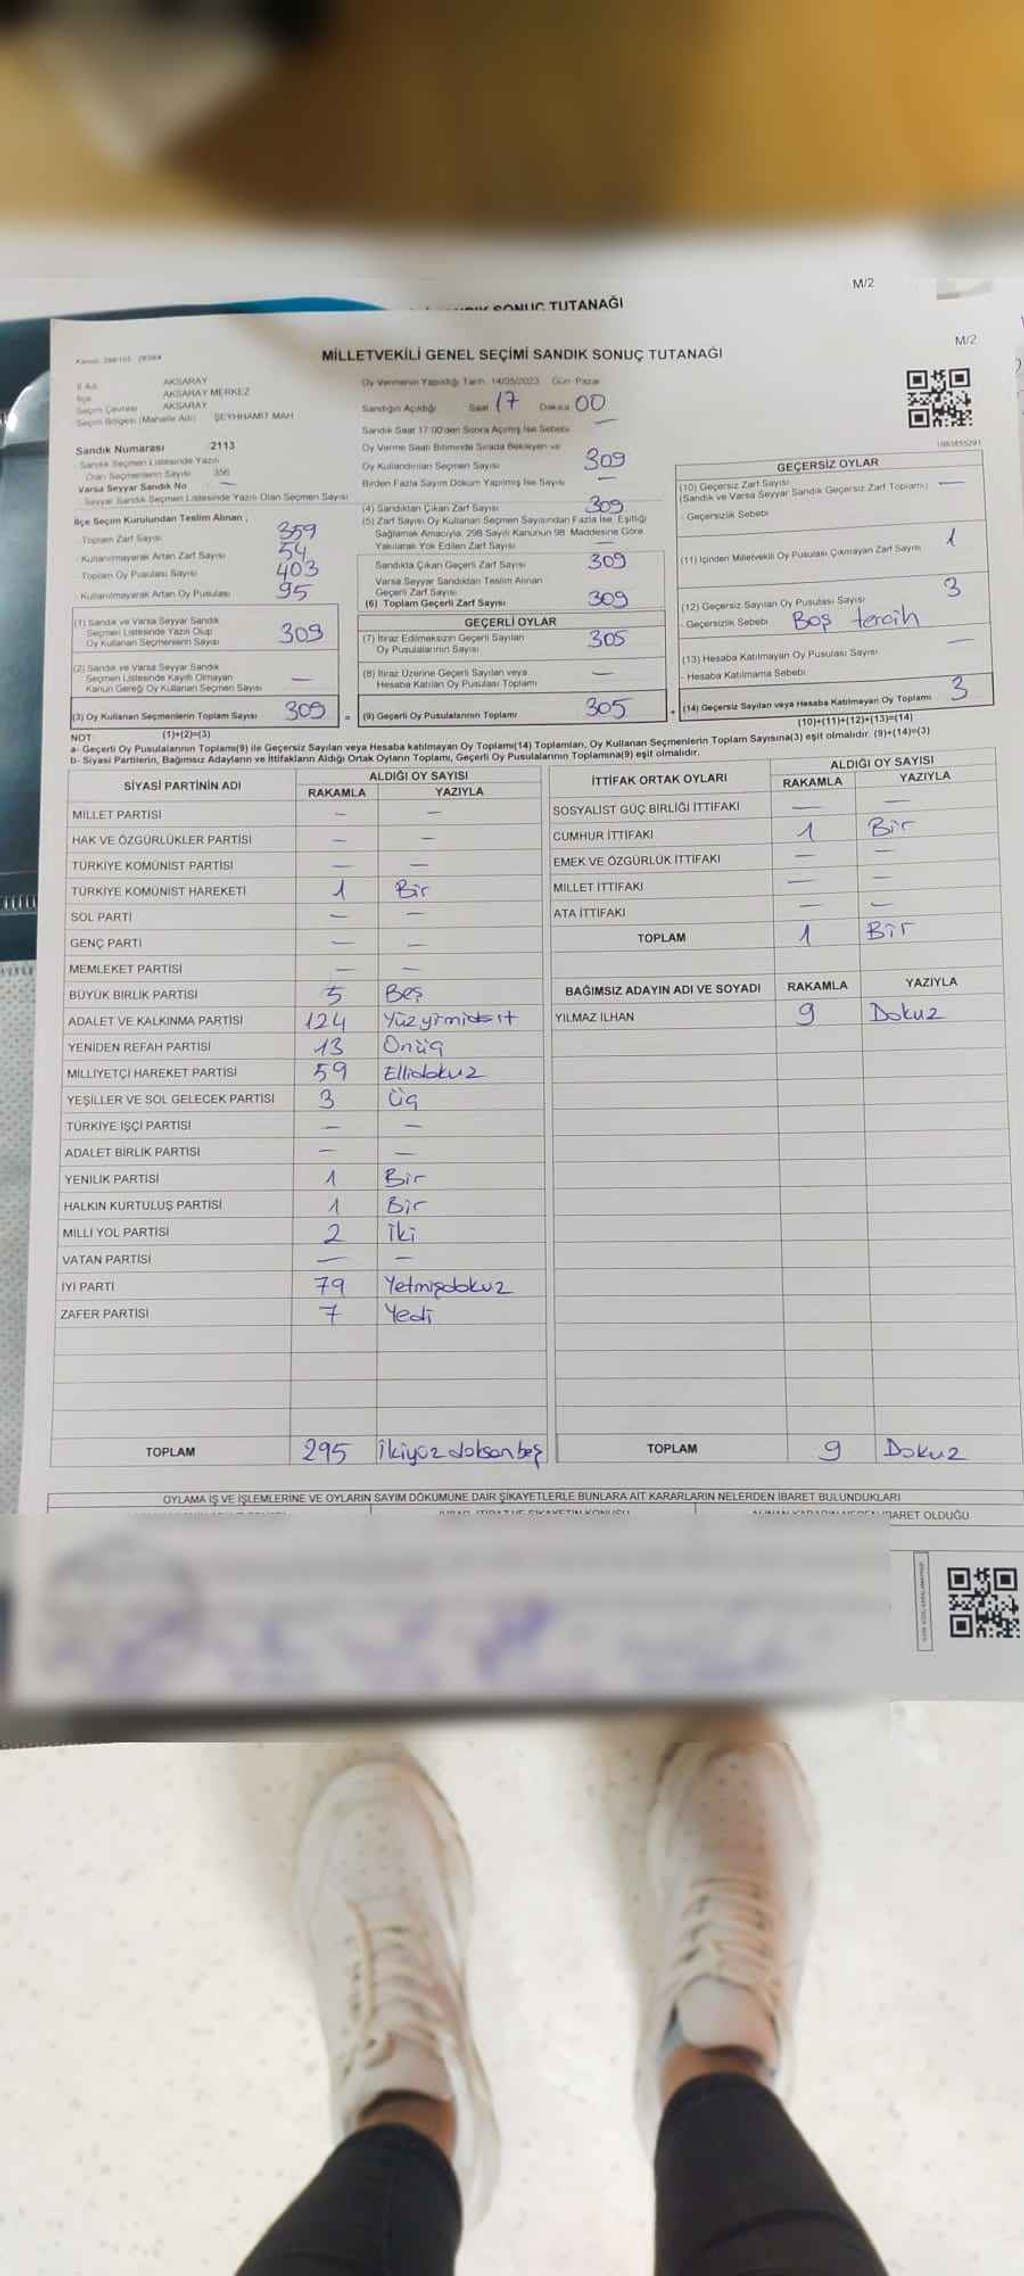 M/2
SONUÇ TUTANAĞI
M/2
MİLLETVEKİLİ GENEL SEÇİMİ SANDIK SONUÇ TUTANAĞI
İl Adı AKSARAY
İlçe AKSARAY MERKEZ
Seçim Çevresi AKSARAY
Seçim Bölgesi (Mahalle Adı) ŞEYHHAMİT MAH
Sandık Numarası 2113
Sandık Seçmen Listesinde Yazılı
Olan Seçmenlerin Sayısı 356
Varsa Seyyar Sandık No —
Seyyar Sandık Seçmen Listesinde Yazılı Olan Seçmen Sayısı
İlçe Seçim Kurulundan Teslim Alınan ;
- Toplam Zarf Sayısı 359
- Kullanılmayarak Artan Zarf Sayısı 54
- Toplam Oy Pusulası Sayısı 403
- Kullanılmayarak Artan Oy Pusulası 95
(1) Sandık ve Varsa Seyyar Sandık
Seçmen Listesinde Yazılı Olup
Oy Kullanan Seçmenlerin Sayısı 309
(2) Sandık ve Varsa Seyyar Sandık
Seçmen Listesinde Kayıtlı Olmayan
Kanun Gereği Oy Kullanan Seçmen Sayısı —
(3) Oy Kullanan Seçmenlerin Toplam Sayısı 309
(1)+(2)=(3)
Oy Vermenin Yapıldığı Tarih 14/05/2023 Gün Pazar
Sandığın Açıldığı Saat 17 Dakika 00
Sandık Saat 17:00'den Sonra Açılmış İse Sebebi —
Oy Verme Saati Bitiminde Sırada Bekleyen ve
Oy Kullandırılan Seçmen Sayısı 309
Birden Fazla Sayım Döküm Yapılmış İse Sayısı —
(4) Sandıktan Çıkan Zarf Sayısı 309
(5) Zarf Sayısı Oy Kullanan Seçmen Sayısından Fazla İse, Eşitliği
Sağlamak Amacıyla, 298 Sayılı Kanunun 98. Maddesine Göre
Yakılarak Yok Edilen Zarf Sayısı —
Sandıkta Çıkan Geçerli Zarf Sayısı 309
Varsa Seyyar Sandıktan Teslim Alınan
Geçerli Zarf Sayısı
(6) Toplam Geçerli Zarf Sayısı 309
GEÇERLİ OYLAR
(7) İtiraz Edilmeksizin Geçerli Sayılan
Oy Pusulalarının Sayısı 305
(8) İtiraz Üzerine Geçerli Sayılan veya
Hesaba Katılan Oy Pusulası Toplamı —
= (9) Geçerli Oy Pusulalarının Toplamı 305
GEÇERSİZ OYLAR
(10) Geçersiz Zarf Sayısı —
(Sandık ve Varsa Seyyar Sandık Geçersiz Zarf Toplamı)
- Geçersizlik Sebebi
(11) İçinden Milletvekili Oy Pusulası Çıkmayan Zarf Sayısı 1
(12) Geçersiz Sayılan Oy Pusulası Sayısı 3
- Geçersizlik Sebebi Boş tercih
(13) Hesaba Katılmayan Oy Pusulası Sayısı —
- Hesaba Katılmama Sebebi
+ (14) Geçersiz Sayılan veya Hesaba Katılmayan Oy Toplamı 3
(10)+(11)+(12)+(13)=(14)
NOT
a- Geçerli Oy Pusulalarının Toplamı(9) ile Geçersiz Sayılan veya Hesaba katılmayan Oy Toplamı(14) Toplamları, Oy Kullanan Seçmenlerin Toplam Sayısına(3) eşit olmalıdır. (9)+(14)=(3)
b- Siyasi Partilerin, Bağımsız Adayların ve İttifakların Aldığı Ortak Oyların Toplamı, Geçerli Oy Pusulalarının Toplamına(9) eşit olmalıdır.
SİYASİ PARTİNİN ADI ALDIĞI OY SAYISI
RAKAMLA YAZIYLA
MİLLET PARTİSİ — —
HAK VE ÖZGÜRLÜKLER PARTİSİ — —
TÜRKİYE KOMÜNİST PARTİSİ — —
TÜRKİYE KOMÜNİST HAREKETİ 1 Bir
SOL PARTİ — —
GENÇ PARTİ — —
MEMLEKET PARTİSİ — —
BÜYÜK BİRLİK PARTİSİ 5 Beş
ADALET VE KALKINMA PARTİSİ 124 Yüzyirmidört
YENİDEN REFAH PARTİSİ 13 Onüç
MİLLİYETÇİ HAREKET PARTİSİ 59 Ellidokuz
YEŞİLLER VE SOL GELECEK PARTİSİ 3 Üç
TÜRKİYE İŞÇİ PARTİSİ — —
ADALET BİRLİK PARTİSİ — —
YENİLİK PARTİSİ 1 Bir
HALKIN KURTULUŞ PARTİSİ 1 Bir
MİLLİ YOL PARTİSİ 2 İki
VATAN PARTİSİ — —
İYİ PARTİ 79 Yetmişdokuz
ZAFER PARTİSİ 7 Yedi
TOPLAM 295 İkiyüzdoksanbeş
İTTİFAK ORTAK OYLARI ALDIĞI OY SAYISI
RAKAMLA YAZIYLA
SOSYALİST GÜÇ BİRLİĞİ İTTİFAKI — —
CUMHUR İTTİFAKI 1 Bir
EMEK VE ÖZGÜRLÜK İTTİFAKI — —
MİLLET İTTİFAKI — —
ATA İTTİFAKI — —
TOPLAM 1 Bir
BAĞIMSIZ ADAYIN ADI VE SOYADI RAKAMLA YAZIYLA
YILMAZ İLHAN 9 Dokuz
TOPLAM 9 Dokuz
OYLAMA İŞ VE İŞLEMLERİNE VE OYLARIN SAYIM DÖKÜMÜNE DAİR ŞİKAYETLERLE BUNLARA AİT KARARLARIN NELERDEN İBARET BULUNDUKLARI
OLDUĞU